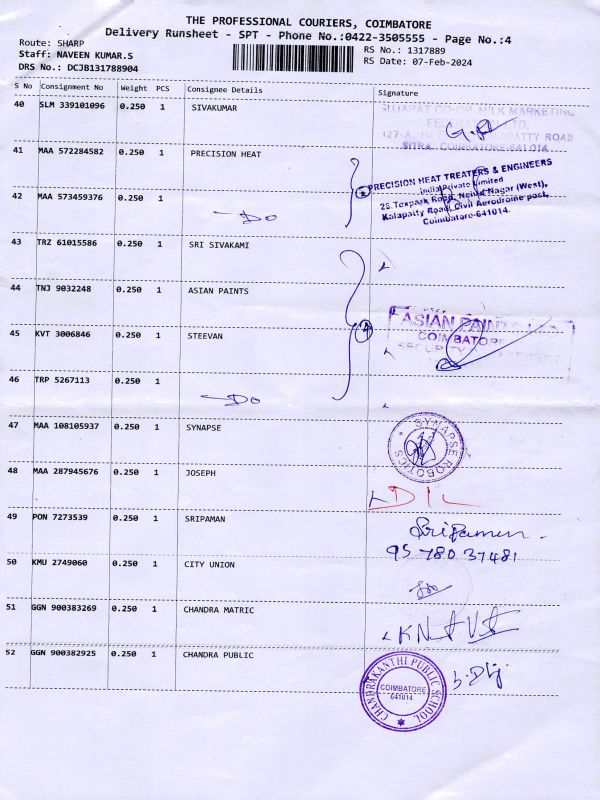 THE PROFESSIONAL COURIERS, COIMBATORE
Delivery Runsheet - SPT - Phone No.:0422-3505555 - Page No.:4
Route: SHARP
Staff: NAVEEN KUMAR.S
DRS No.: DCJB131788904
RS No.: 1317889
RS Date: 07-Feb-2024
S No Consignment No Weight PCS Consignee Details Signature
40 SLM 339101096 0.250 1 SIVAKUMAR
GUJARAT CO-OP MILK MARKETING
SITRA, COIMBATORE-641 014
41 MAA 572284582 0.250 1 PRECISION HEAT
PRECISION HEAT TREATERS & ENGINEERS
India Private Limited
28, Texpark Road, Nehru Nagar (West),
Kalapatty Road, Civil Aerodrome post,
Coimbatore-641014.
42 MAA 573459376 0.250 1 Do
43 TRZ 61015586 0.250 1 SRI SIVAKAMI
44 TNJ 9032248 0.250 1 ASIAN PAINTS
ASIAN PAINTS
COIMBATORE
45 KVT 3006846 0.250 1 STEEVAN
46 TRP 5267113 0.250 1 Do
47 MAA 108105937 0.250 1 SYNAPSE
SYNAPSE ROBOTICS
48 MAA 287945676 0.250 1 JOSEPH
DIL
49 PON 7273539 0.250 1 SRIPAMAN
Sripaman
95780 37481
50 KMU 2749060 0.250 1 CITY UNION
51 GGN 900383269 0.250 1 CHANDRA MATRIC
52 GGN 900382925 0.250 1 CHANDRA PUBLIC
CHANDRAKANTHI PUBLIC SCHOOL
COIMBATORE
641014.